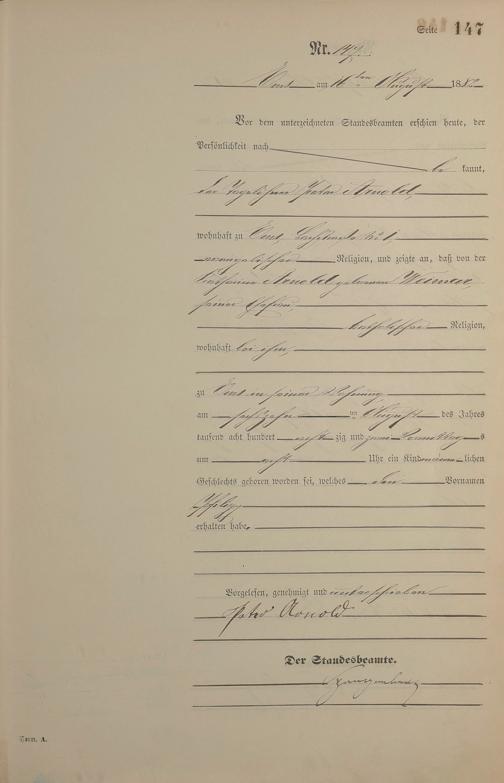 Seite 147
Nr. 147
Ems am 16ten August 1882
Vor dem unterzeichneten Standesbeamten erschien heute, der
Persönlichkeit nach
be kannt,
der Tagelöhner Peter Arnold,
wohnhaft zu Ems,
evangelischer Religion, und zeigte an, daß von der
Arnold geborenen
seiner Ehefrau,
katholischer Religion,
wohnhaft bei ihm,
zu Ems in seiner Wohnung
am sechzehn ten August des Jahres
tausend acht hundert acht zig und zwei Vormittags
um acht Uhr ein Kind männ lichen
Geschlechts geboren worden sei, welches den Vornamen
erhalten habe.
Vorgelesen, genehmigt und unterschrieben
Peter Arnold
Der Standesbeamte.
Form. A.